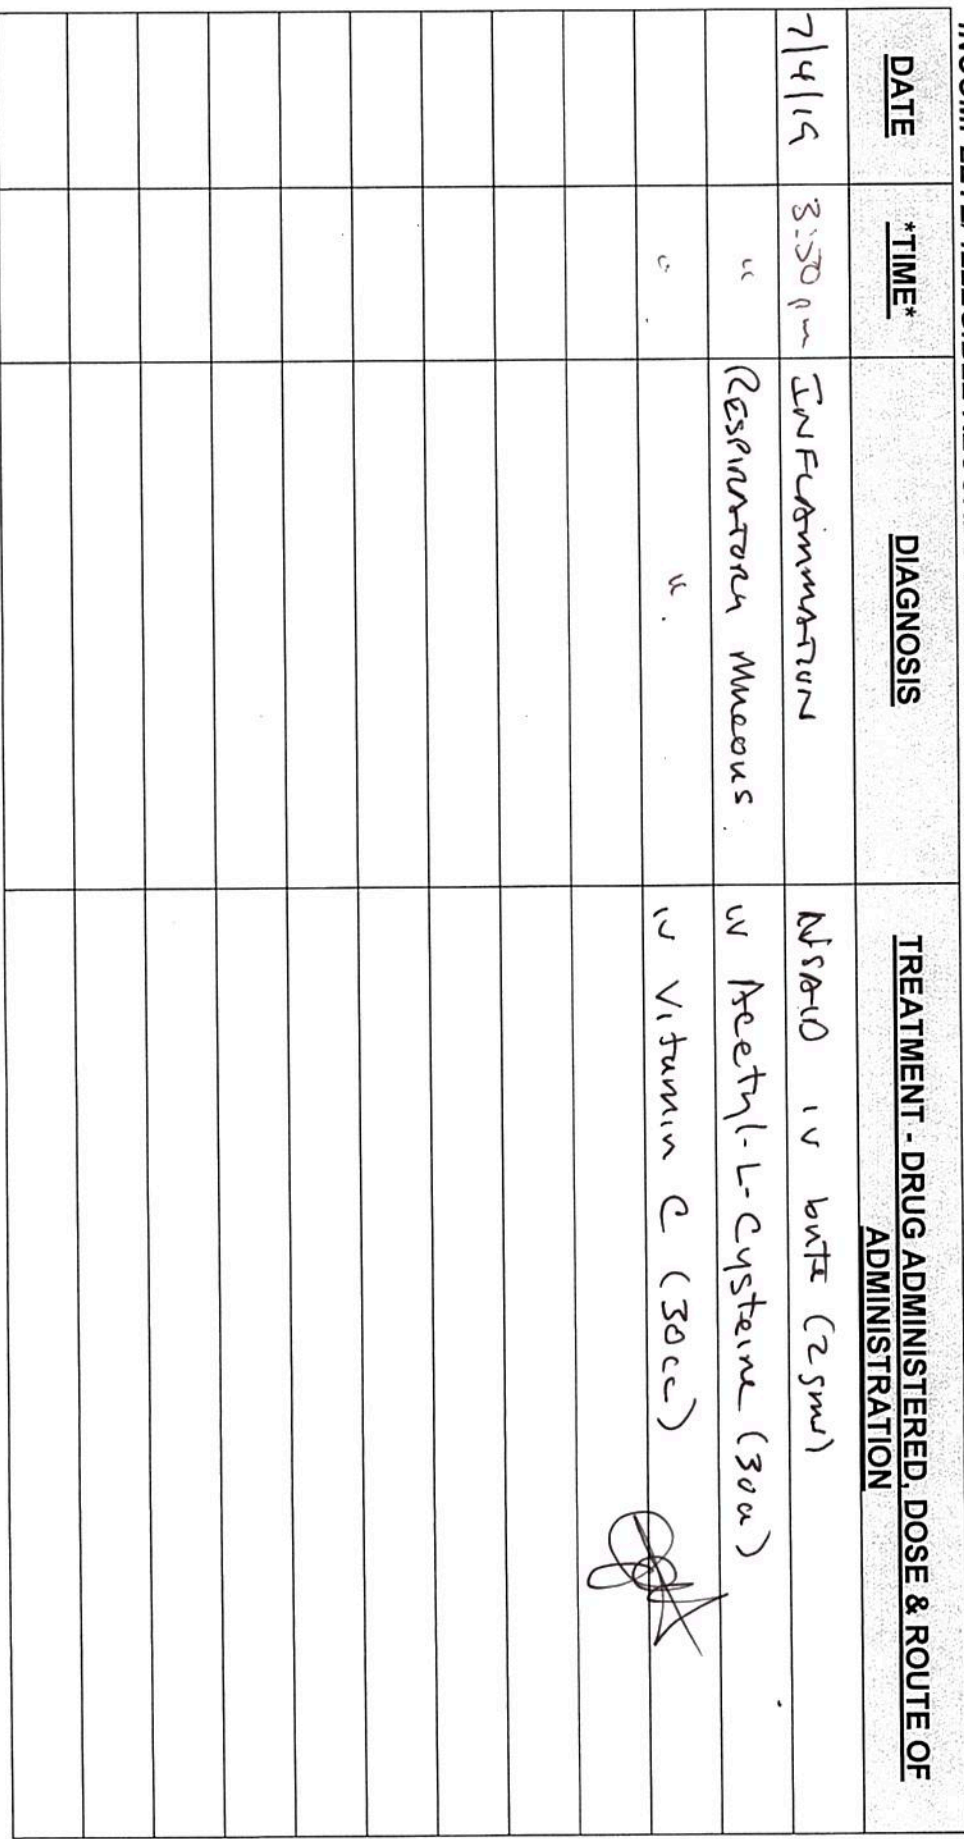 DATE *TIME* DIAGNOSIS TREATMENT - DRUG ADMINISTERED, DOSE & ROUTE OF
ADMINISTRATION
7/4/19 3:30 pm INFLAMMATION NSAID IV bute (2gms)
" RESPIRATORY Mucous IV Acetyl-L-Cysteine (30cc)
" " IV Vitamin C (30cc)